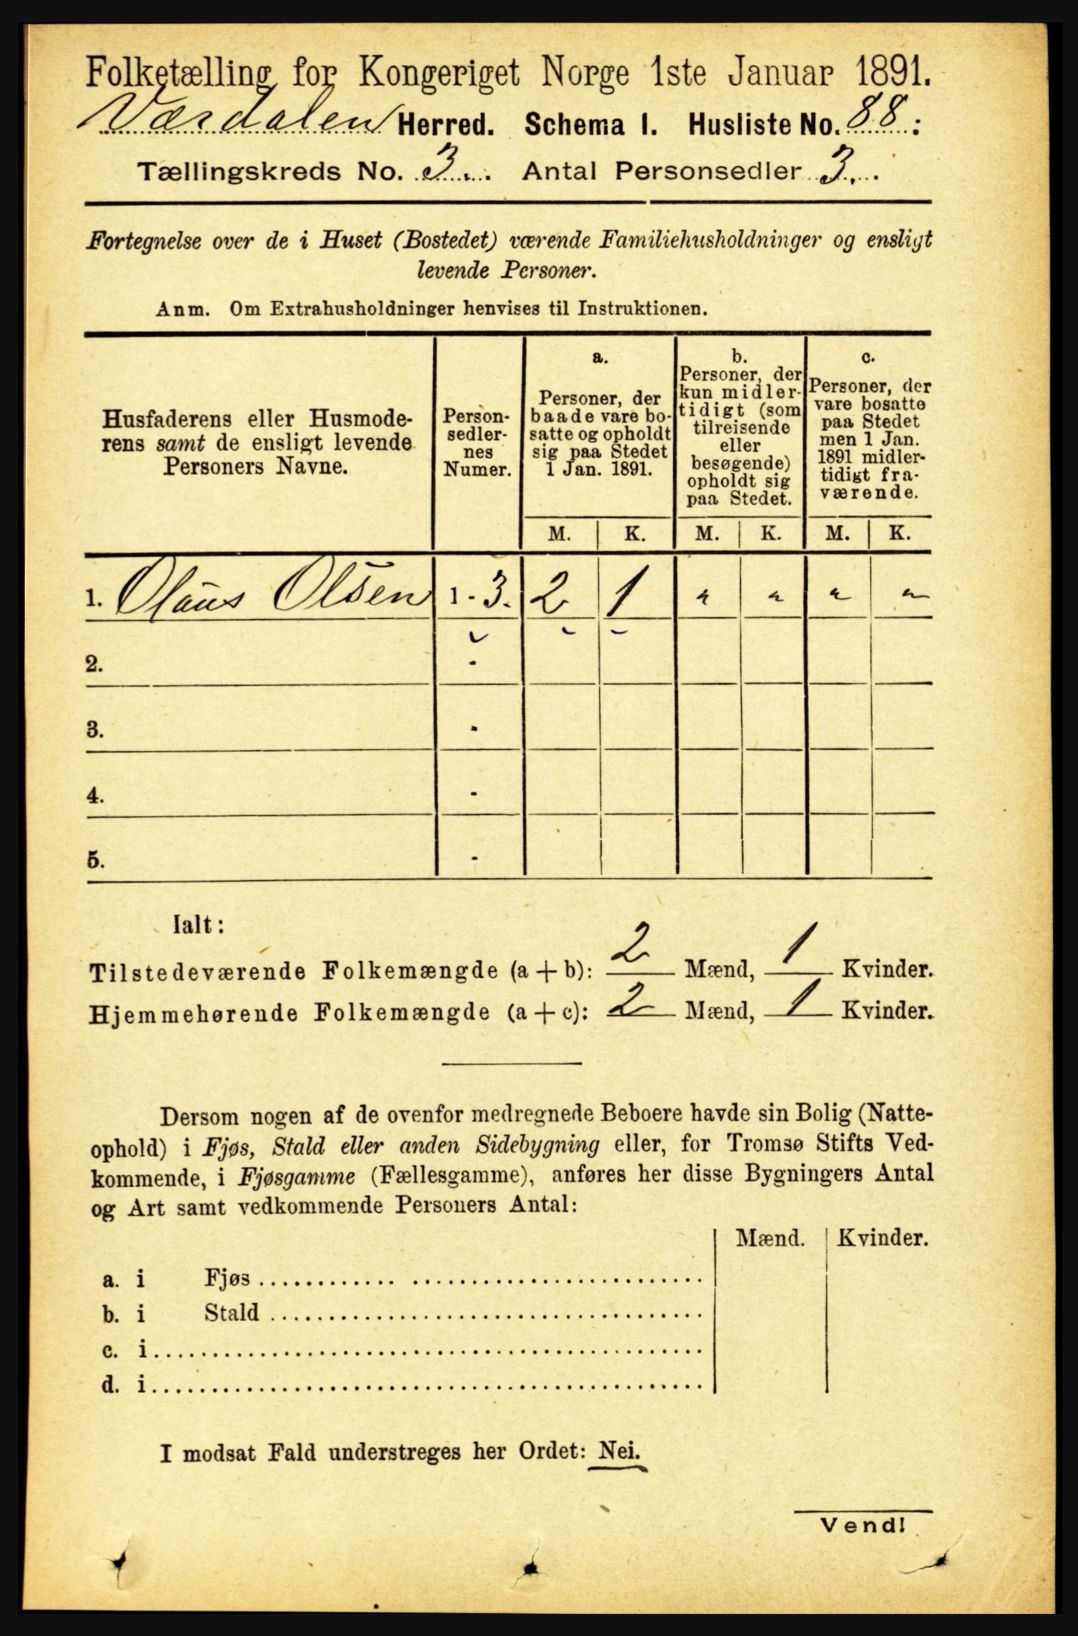 Folketælling for Kongeriget Norge 1ste Januar 1891.
Værdalen Herred. Schema I. Husliste No. 88:
Tællingskreds No. 3. Antal Personsedler 3.
Fortegnelse over de i Huset (Bostedet) værende Familiehusholdninger og ensligt
levende Personer.
Anm. Om Extrahusholdninger henvises til Instruktionen.
Husfaderens eller Husmode-
rens samt de ensligt levende
Personers Navne.
Person-
sedler-
nes
Numer.
a.
Personer, der
baade vare bo-
satte og opholdt
sig paa Stedet
1 Jan. 1891.
b.
Personer, der
kun midler-
tidigt (som
tilreisende
eller
besøgende)
opholdt sig
paa Stedet.
c.
Personer, der
vare bosatte
paa Stedet
men 1 Jan.
1891 midler-
tidigt fra-
værende.
M. K. M. K. M. K.
1. Olaus Olsen 1 - 3. 2 1 " " " "
2. -
3. -
4. -
5. -
Ialt:
Tilstedeværende Folkemængde (a + b): 2 Mænd, 1 Kvinder.
Hjemmehørende Folkemængde (a + c): 2 Mænd, 1 Kvinder.
Dersom nogen af de ovenfor medregnede Beboere havde sin Bolig (Natte-
ophold) i Fjøs, Stald eller anden Sidebygning eller, for Tromsø Stifts Ved-
kommende, i Fjøsgamme (Fællesgamme), anføres her disse Bygningers Antal
og Art samt vedkommende Personers Antal:
Mænd. Kvinder.
a. i Fjøs
b. i Stald
c. i
d. i
I modsat Fald understreges her Ordet: Nei.
Vend!